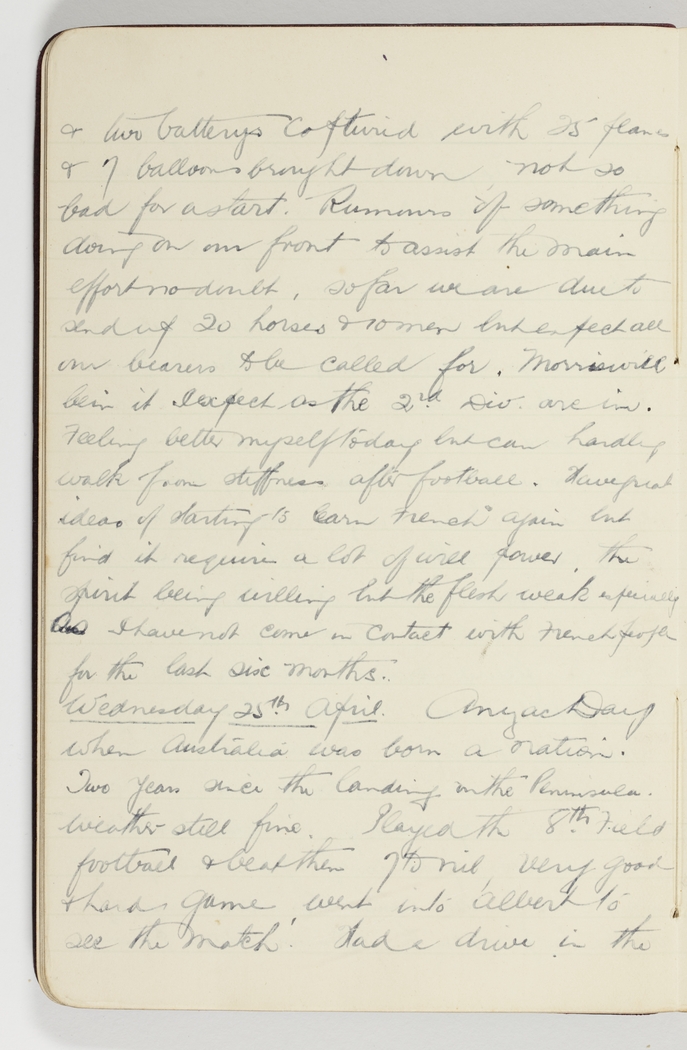 & two batterys captured with 25 planes
& 7 balloons brought down not so
bad for a start. Rumours of something
doing on our front to assist the main
effort no doubt, so far we are due to
send up 20 horses & 10 men but expect all
our bearers to be called for. Morris will
be in it I expect as the 2nd Div. are in.
Feeling better myself today but can hardly
walk from stiffness after football. Have great
ideas of starting to learn French again but
find it requires a lot of will power, the
spirit being willing but the flesh weak especially
as I have not come in contact with French people
for the last six months.
Wednesday 25th April. Anzac Day
when Australia was born a nation.
Two years since the landing on the Peninsula.
Weather still fine. Played the 8th Field
football & beat them 7 to nil very good
& hard game went into Albert to
see the match! Had a drive in the